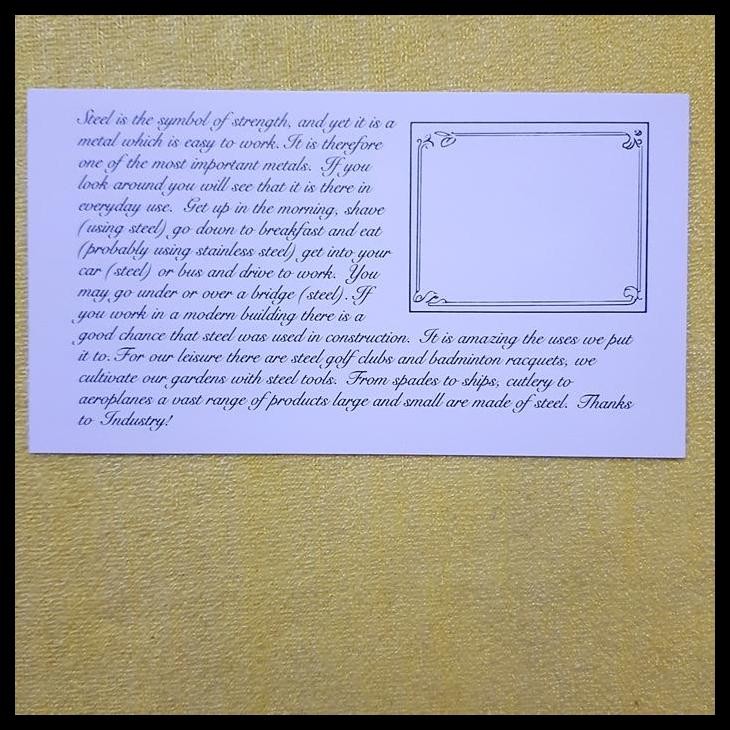 Steel is the symbol of strength, and yet it is a
metal which is easy to work. It is therefore
one of the most important metals. If you
look around you will see that it is there in
everyday use. Get up in the morning, shave
(using steel) go down to breakfast and eat
(probably using stainless steel) get into your
car (steel) or bus and drive to work. You
may go under or over a bridge (steel). If
you work in a modern building there is a
good chance that steel was used in construction. It is amazing the uses we put
it to. For our leisure there are steel golf clubs and badminton racquets, we
cultivate our gardens with steel tools. From spades to ships, cutlery to
aeroplanes a vast range of products large and small are made of steel. Thanks
to Industry!